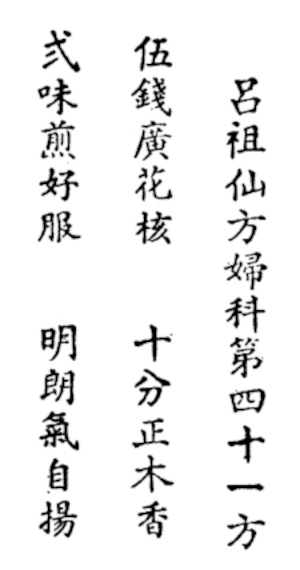 呂祖仙方婦科第四十一方
伍錢廣花核　十分正木香
弍味煎好服　明朗氣自揚